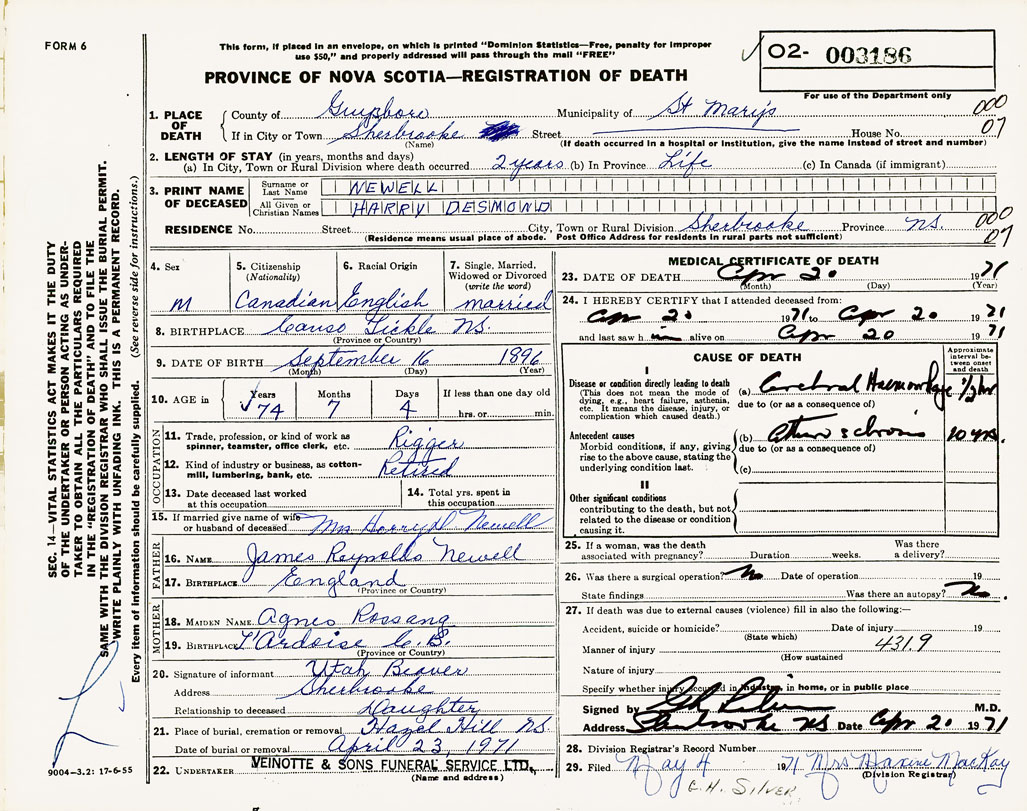 FORM 6
This form, if placed in an envelope, on which is printed "Dominion Statistics—Free, penalty for improper
use $50," and properly addressed will pass through the mail "FREE"
PROVINCE OF NOVA SCOTIA—REGISTRATION OF DEATH
O2- 003186
For use of the Department only
1. PLACE OF DEATH
County of Guysboro Municipality of St Mary's 000
If in City or Town Sherbrooke Street House No. 07
(Name) (If death occurred in a hospital or institution, give the name instead of street and number)
2. LENGTH OF STAY (in years, months and days)
(a) In City, Town or Rural Division where death occurred 2 years (b) In Province Life (c) In Canada (if immigrant)
3. PRINT NAME OF DECEASED
Surname or Last Name NEWELL
All Given or Christian Names HARRY DESMOND
RESIDENCE No. Street City, Town or Rural Division Sherbrooke Province NS. 000
(Residence means usual place of abode. Post Office Address for residents in rural parts not sufficient) 07
4. Sex
M
5. Citizenship
(Nationality)
Canadian
6. Racial Origin
English
7. Single, Married,
Widowed or Divorced
(write the word)
married
8. BIRTHPLACE Canso Tickle NS.
(Province or Country)
9. DATE OF BIRTH September 16 1896
(Month) (Day) (Year)
10. AGE in
Years Months Days If less than one day
74 7 4 hrs. or min.
OCCUPATION
11. Trade, profession, or kind of work as
spinner, teamster, office clerk, etc. Rigger
12. Kind of industry or business, as cotton-
mill, lumbering, bank, etc. Retired
13. Date deceased last worked
at this occupation
14. Total yrs. spent in
this occupation
15. If married give name of wife
or husband of deceased Mrs Harry D Newell
FATHER
16. NAME James Reynolds Newell
17. BIRTHPLACE England
(Province or Country)
MOTHER
18. MAIDEN NAME Agnes Rossang
19. BIRTHPLACE L'Ardoise C.B.
(Province or Country)
20. Signature of informant Utah Beaver
Address Sherbrooke
Relationship to deceased Daughter
21. Place of burial, cremation or removal Hazel Hill NS.
Date of burial or removal April 23, 1971
22. UNDERTAKER VEINOTTE & SONS FUNERAL SERVICE LTD.
(Name and address)
MEDICAL CERTIFICATE OF DEATH
23. DATE OF DEATH Apr 20 1971
(Month) (Day) (Year)
24. I HEREBY CERTIFY that I attended deceased from:
Apr 20 1971 to Apr 20 1971
and last saw h im alive on Apr 20 1971
CAUSE OF DEATH
Approximate
interval be-
tween onset
and death
I
Disease or condition directly leading to death
(This does not mean the mode of
dying, e.g., heart failure, asthenia,
etc. It means the disease, injury, or
complication which caused death.)
(a) Cerebral Haemorrhage 1/2 hr
due to (or as a consequence of)
Antecedent causes
Morbid conditions, if any, giving
rise to the above cause, stating the
underlying condition last.
(b) 10 yrs.
due to (or as a consequence of)
(c)
II
Other significant conditions
contributing to the death, but not
related to the disease or condition
causing it.
25. If a woman, was the death
associated with pregnancy? Duration weeks. Was there
a delivery?
26. Was there a surgical operation? No Date of operation 19
State findings Was there an autopsy? No.
27. If death was due to external causes (violence) fill in also the following:—
Accident, suicide or homicide? Date of injury 19
(State which)
Manner of injury 431.9
(How sustained
Nature of injury
Specify whether injury occurred in industry, in home, or in public place
Signed by M.D.
Address Sherbrooke NS Date Apr 20 1971
28. Division Registrar's Record Number
29. Filed May 4 1971 Mrs Maxine MacKay
(Division Registrar)
C.H. SILVER
SEC. 14—VITAL STATISTICS ACT MAKES IT THE DUTY
OF THE UNDERTAKER OR PERSON ACTING AS UNDER-
TAKER TO OBTAIN ALL THE PARTICULARS REQUIRED
IN THE "REGISTRATION OF DEATH" AND TO FILE THE
SAME WITH THE DIVISION REGISTRAR WHO SHALL ISSUE THE BURIAL PERMIT.
WRITE PLAINLY WITH UNFADING INK. THIS IS A PERMANENT RECORD.
Every item of information should be carefully supplied. (See reverse side for instructions.)
9004—3.2: 17-6-55